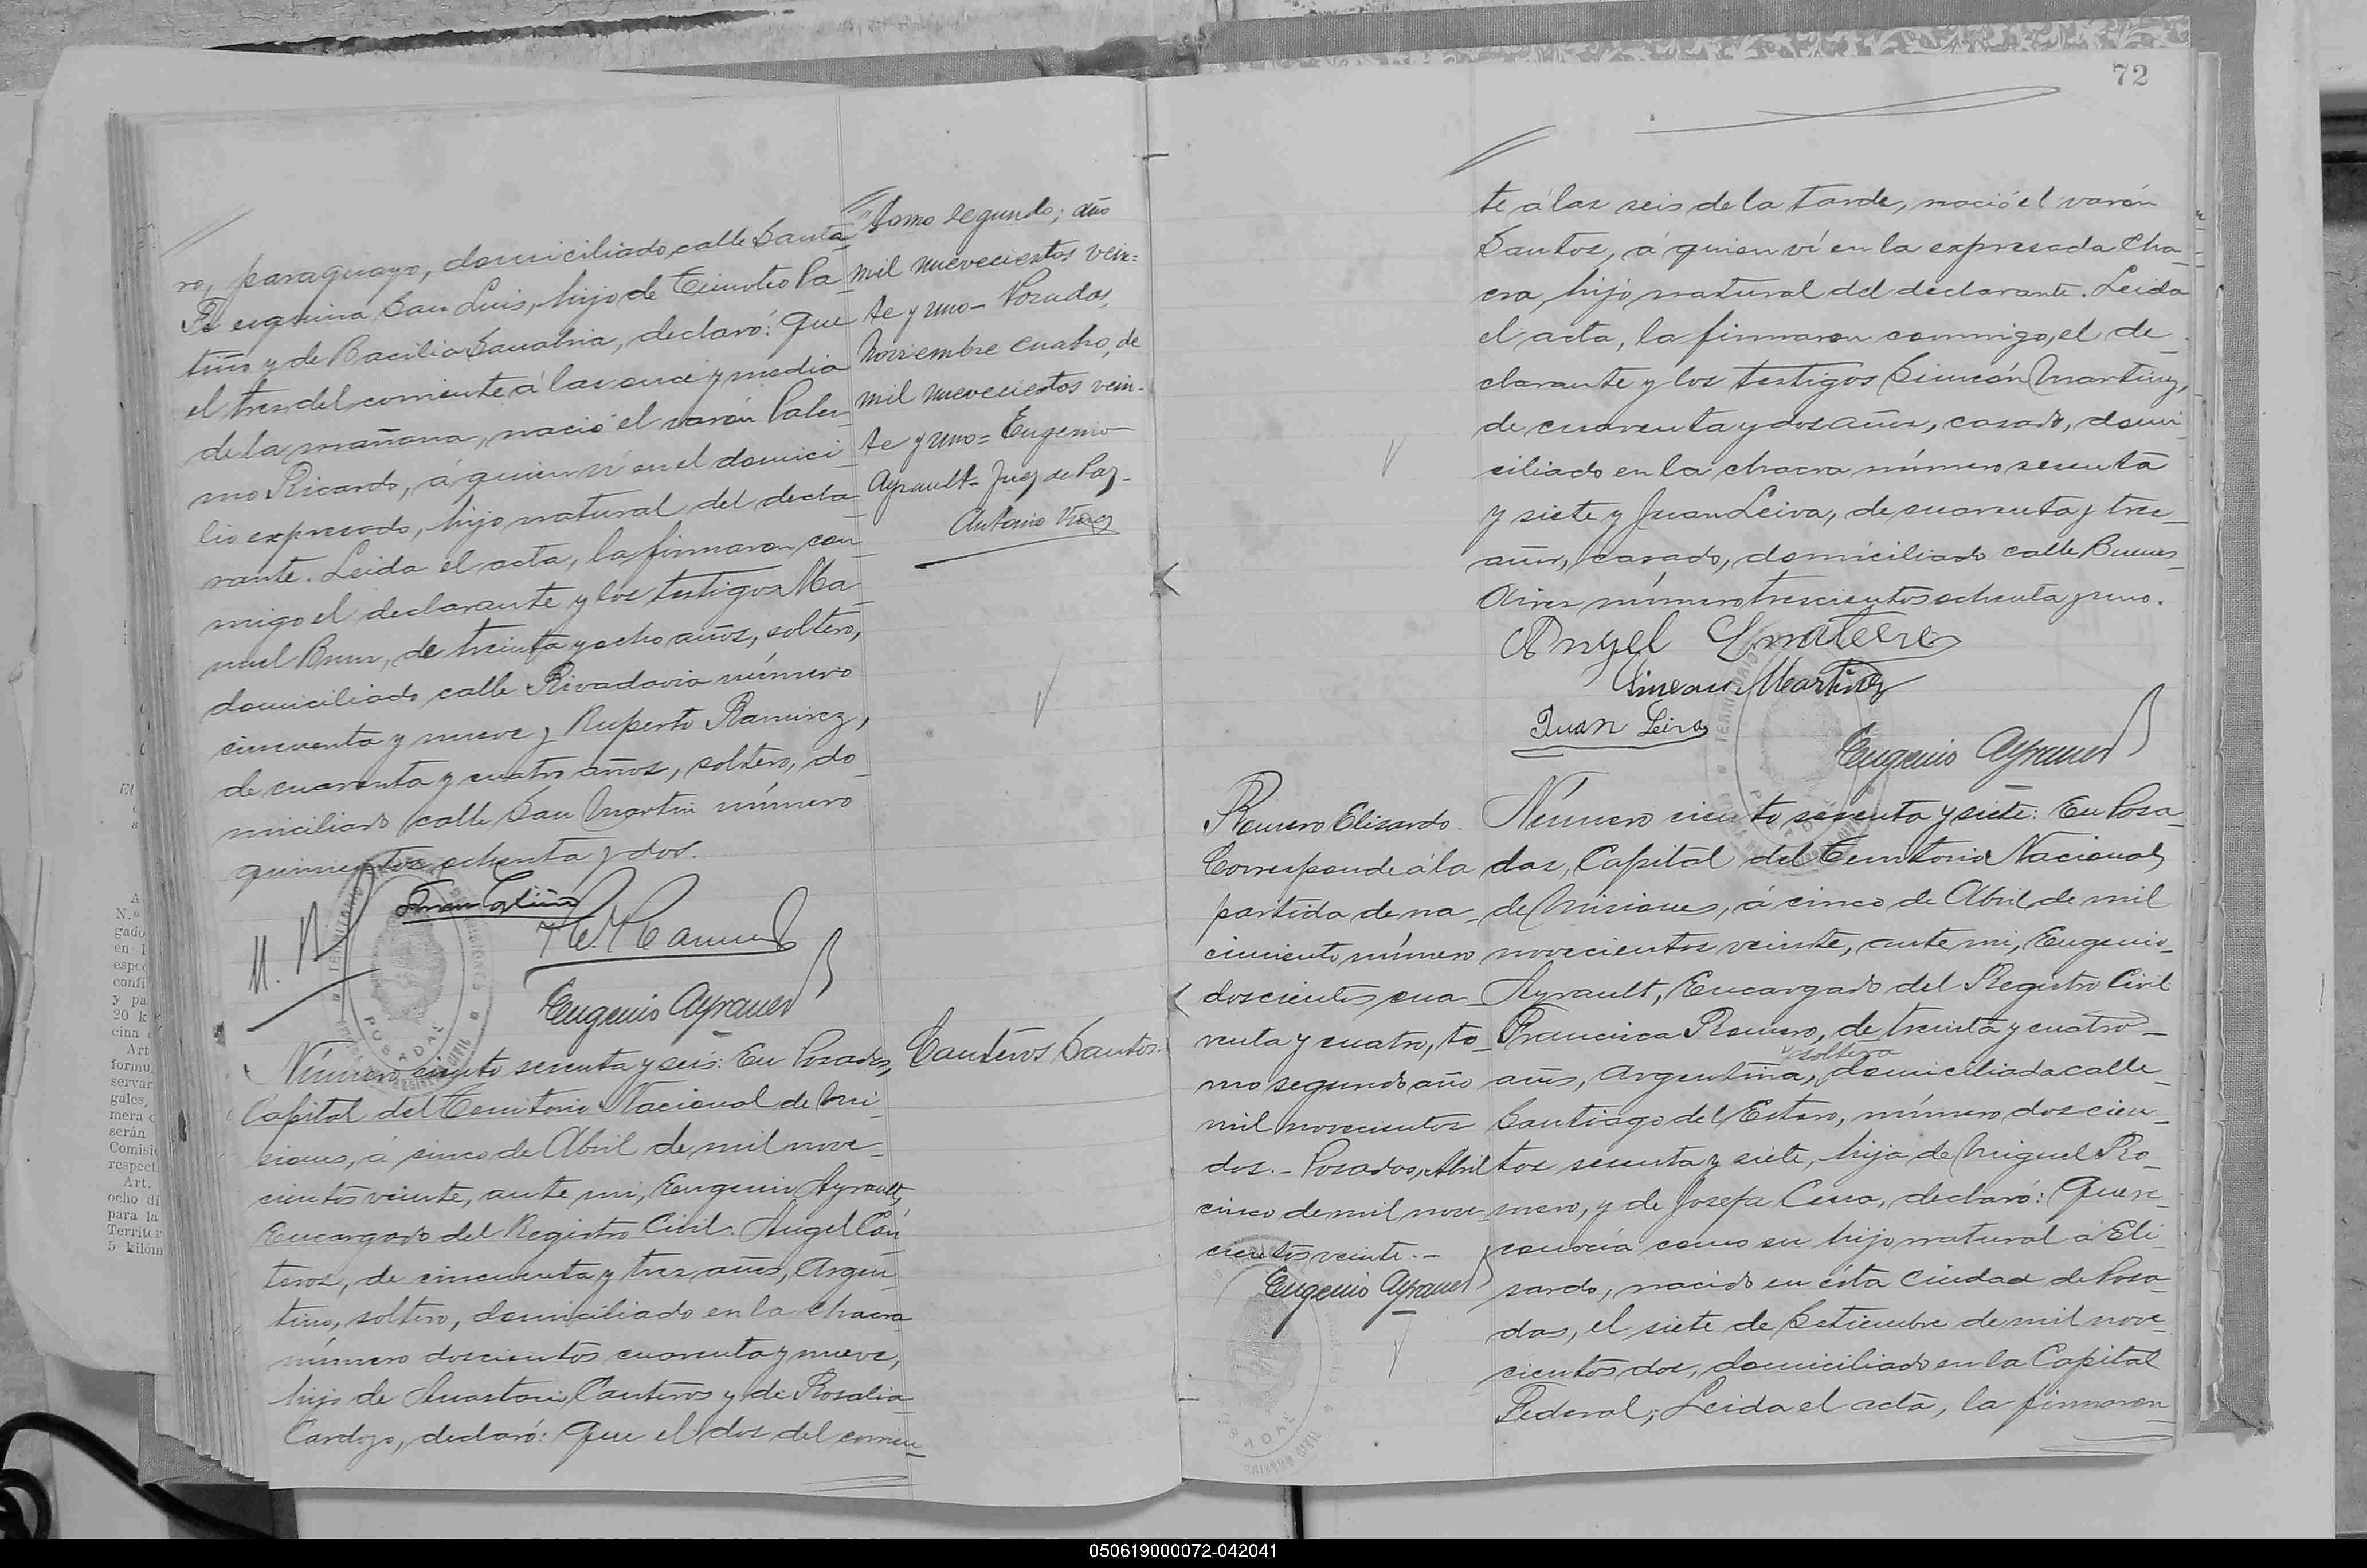 ro, paraguayo, domiciliado, calle Santa
Fe esquina San Luis, hijo de Timoteo Pa
tiño y de Bacilia Sanabria, declaró: Que
el tres del corriente á las once y media
de la mañana, nació el varón Paler
mo Ricardo, á quien ví en el domici
lio expresado, hijo natural del decla
rante. Leida el acta, la firmaron con
migo el declarante y los testigos Ma
nuel Brun, de treinta y ocho años, soltero,
domiciliado calle Rivadavia número
cincuenta y nueve y Ruperto Ramirez,
de cuarenta y cuatro años, soltero, do
miciliado calle San Martin número
quinientos ochenta y dos.
Eugenio Ayrault
tomo segundo; año
mil nuevecientos vein=
te y uno - Posadas,
Noviembre cuatro, de
mil nuevecientos vein-
te y uno = Eugenio
Ayrault - Juez de Paz -
Antonio
Número ciento sesenta y seis: En Posadas,
Capital del Territorio Nacional de Mi
siones, á cinco de Abril de mil nove
cientos veinte, ante mi, Eugenio Ayrault,
Encargado del Registro Civil. Angel Can
teros, de cincuenta y tres años, Argen
tino, soltero, domiciliado en la chacra
número doscientos cuarenta y nueve,
hijo de Anastacio Canteros y de Rosalia
Cardozo, declaró: Que el dos del corrien
Canteros Santos.
72
te á las seis de la tarde, nació el varón
Santos, á quien ví en la expresada cha
cra, hijo natural del declarante. Leida
el acta, la firmaron conmigo, el de
clarante y los testigos Simeón Martinez,
de cuarenta y dos años, casado, domi
ciliado en la chacra número sesenta
y siete y Juan Leiva, de cuarenta y tres
años, casado, domiciliado calle Buenos
Aires número trescientos ochenta y uno.
Angel
Simeon Martinez
Juan Leiva
Eugenio Ayrault
Romero Elisardo.
Corresponde á la
partida de na-
cimiento número
doscientos cua
renta y cuatro, to
mo segundo año
mil novecientos
dos. - Posadas, Abril
cinco de mil nove
cientos veinte. -
Eugenio Ayrault
Número ciento sesenta y siete: En Posa
das, Capital del Territorio Nacional
de Misiones, á cinco de Abril de mil
novecientos veinte, ante mi, Eugenio
Ayrault, Encargado del Registro Civil
Francisca Romero, de treinta y cuatro
y soltera
años, Argentina, domiciliada calle
Santiago del Estero, número doscien
tos sesenta y siete, hija de Miguel Ro
mero, y de Josefa declaró: Que re
conocía como su hijo natural á Eli
sardo, nacido en ésta Ciudad de Posa
das, el siete de Setiembre de mil nove
cientos dos, domiciliado en la Capital
Federal; Leida el acta, la firmaron
050619000072-042041